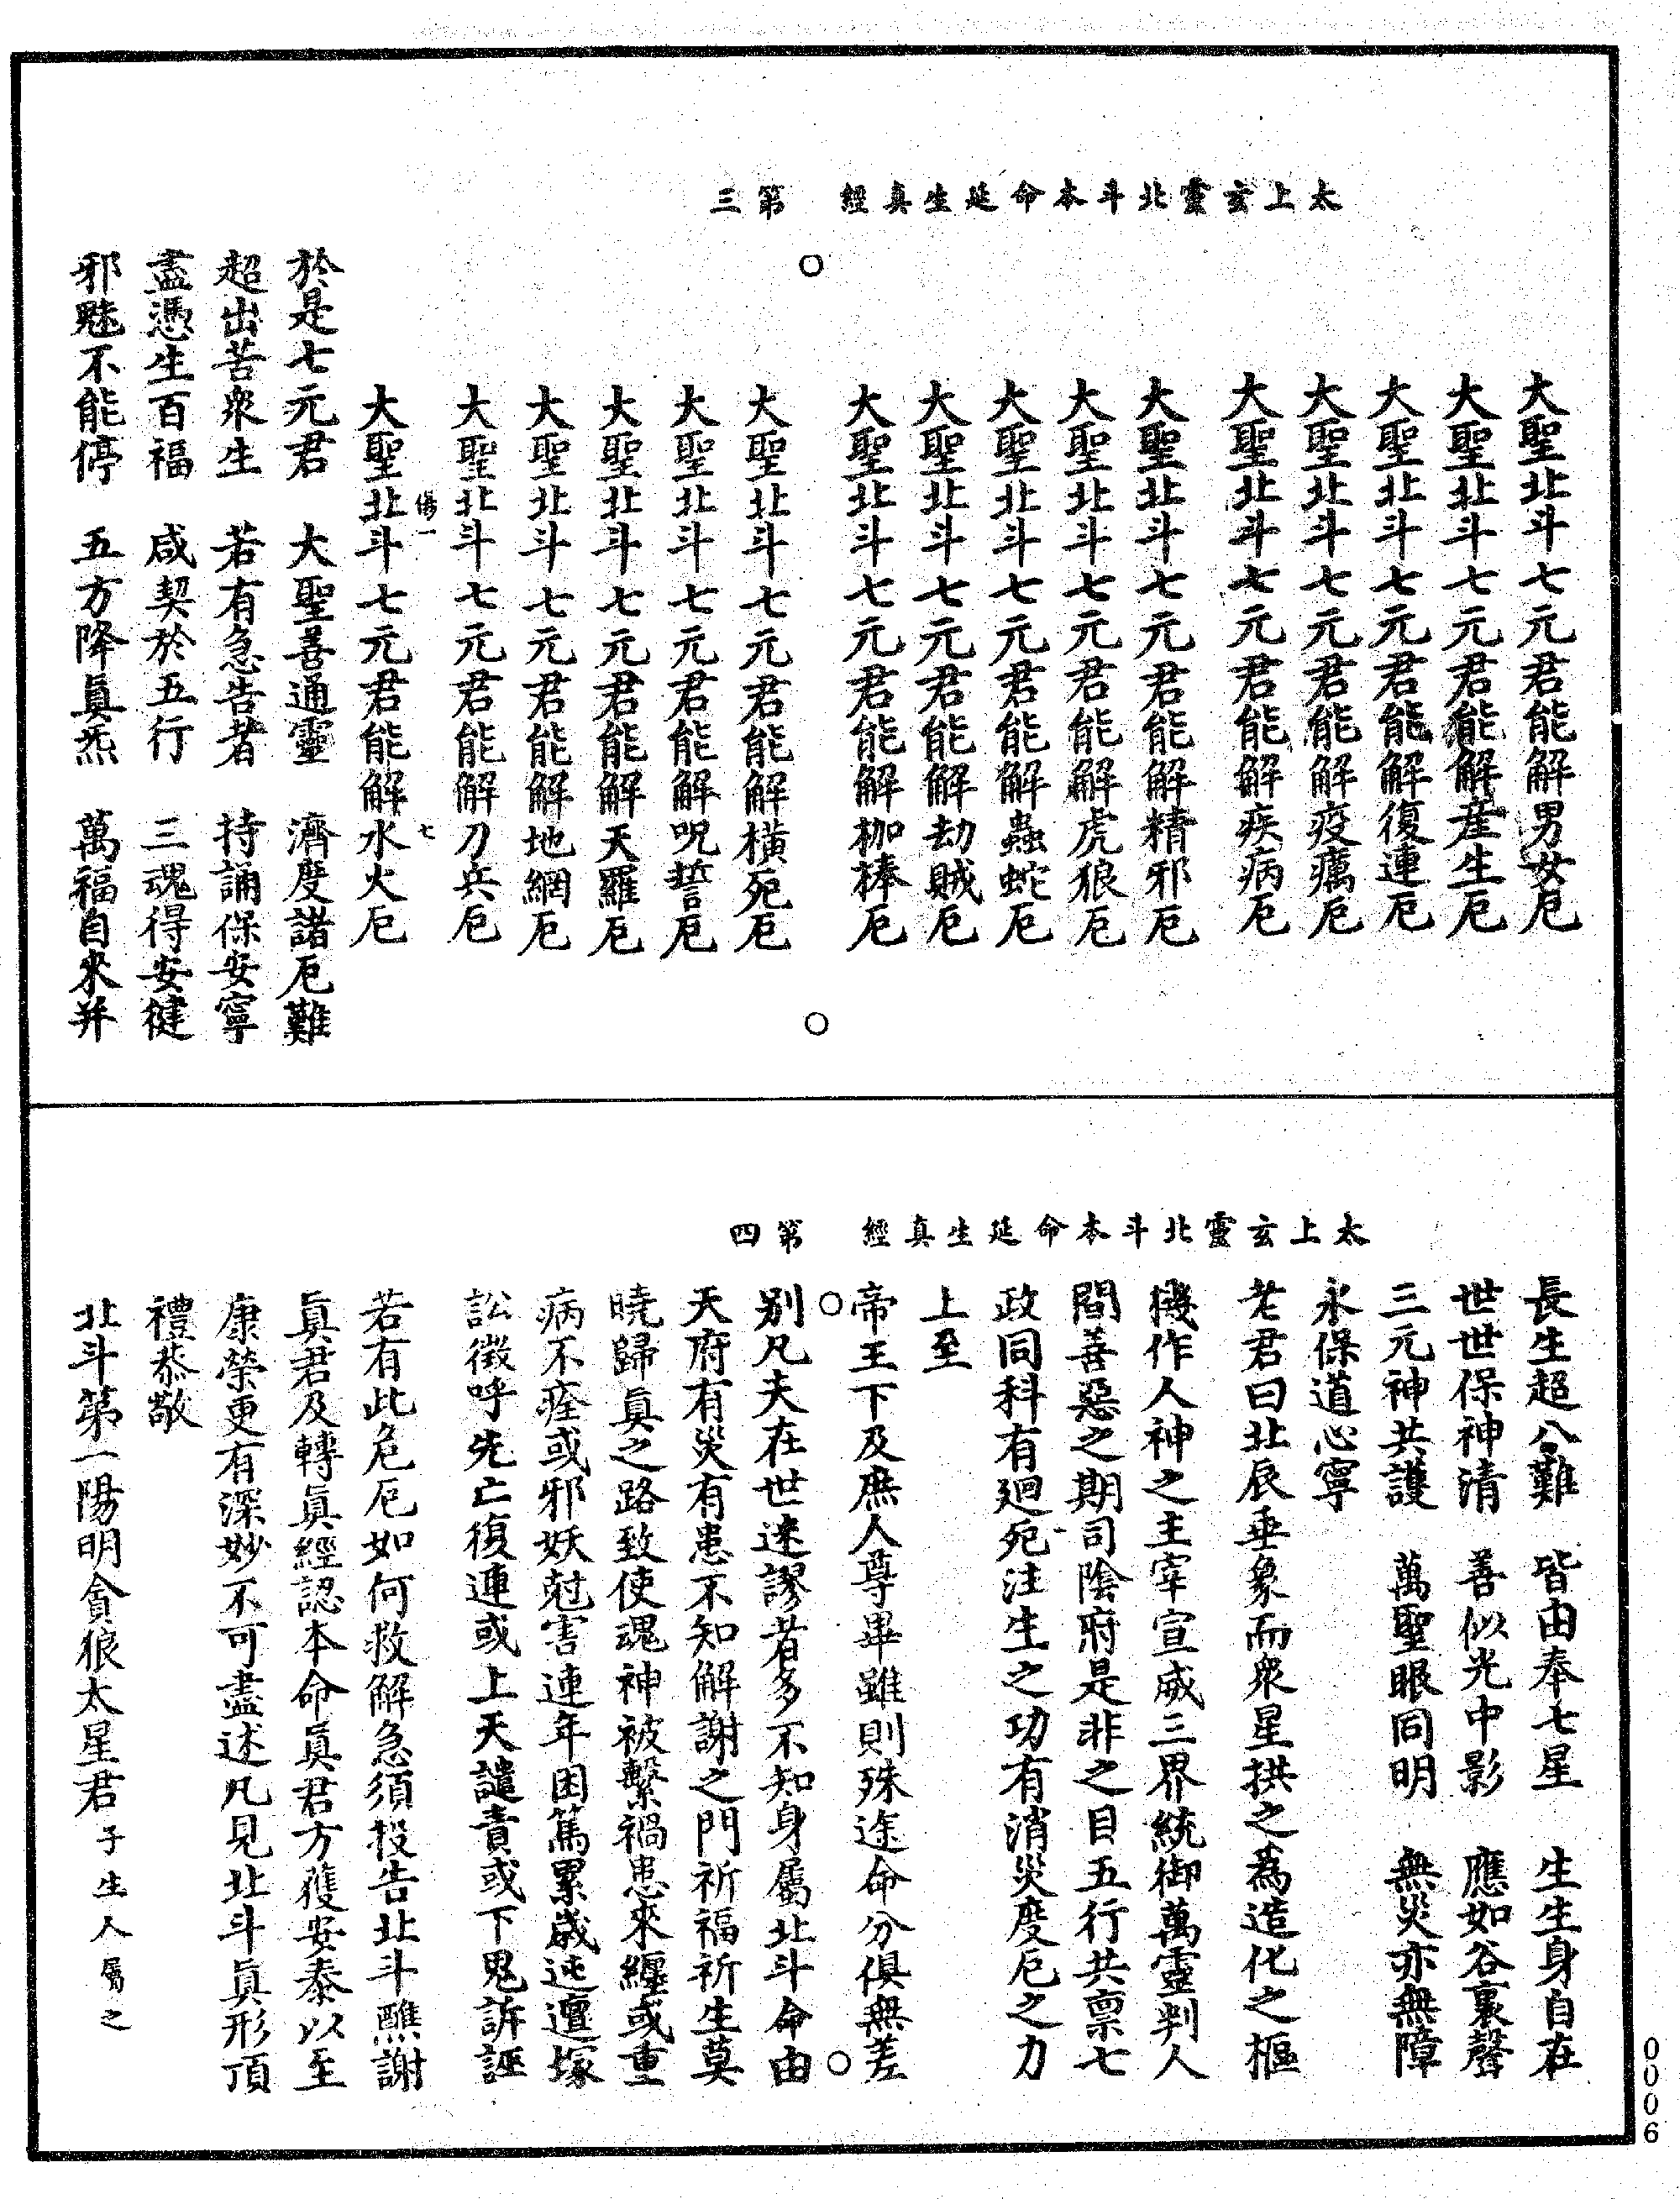 太上玄靈北斗本命延生真經　第三
大聖北斗七元君能解男女厄
大聖北斗七元君能解產生厄
大聖北斗七元君能解復連厄
大聖北斗七元君能解疫癘厄
大聖北斗七元君能解疾病厄
大聖北斗七元君能解精邪厄
大聖北斗七元君能解虎狼厄
大聖北斗七元君能解蟲蛇厄
大聖北斗七元君能解劫賊厄
大聖北斗七元君能解枷棒厄
大聖北斗七元君能解橫死厄
大聖北斗七元君能解呪誓厄
大聖北斗七元君能解天羅厄
大聖北斗七元君能解地網厄
大聖北斗七元君能解刀兵厄
傷一　七
大聖北斗七元君能解水火厄
於是七元君　大聖善通靈　濟度諸厄難
超出苦衆生　若有急告者　持誦保安寧
盡憑生百福　咸契於五行　三魂得安健
邪魅不能停　五方降眞炁　萬福自來并
太上玄靈北斗本命延生真經　第四
長生超八難　皆由奉七星　生生身自在
世世保神清　善似光中影　應如谷裏聲
三元神共護　萬聖眼同明　無災亦無障
永保道心寧
老君曰北辰垂象而衆星拱之爲造化之樞
機作人神之主宰宣威三界統御萬靈判人
間善惡之期司陰府是非之目五行共禀七
政同科有迴死注生之功有消災度厄之力
上至
帝王下及庶人尊卑雖則殊途命分俱無差
别凡夫在世迷謬者多不知身屬北斗命由
天府有災有患不知解謝之門祈福祈生莫
曉歸眞之路致使魂神被繫禍患來纏或重
病不痊或邪妖尅害連年困篤累歲迍邅塚
訟徵呼先亡復連或上天譴責或下鬼訴誣
若有此危厄如何救解急須投告北斗醮謝
眞君及轉眞經認本命眞君方獲安泰以至
康榮更有深妙不可盡述凡見北斗眞形頂
禮恭敬
北斗第一陽明貪狼太星君子生人屬之
0006